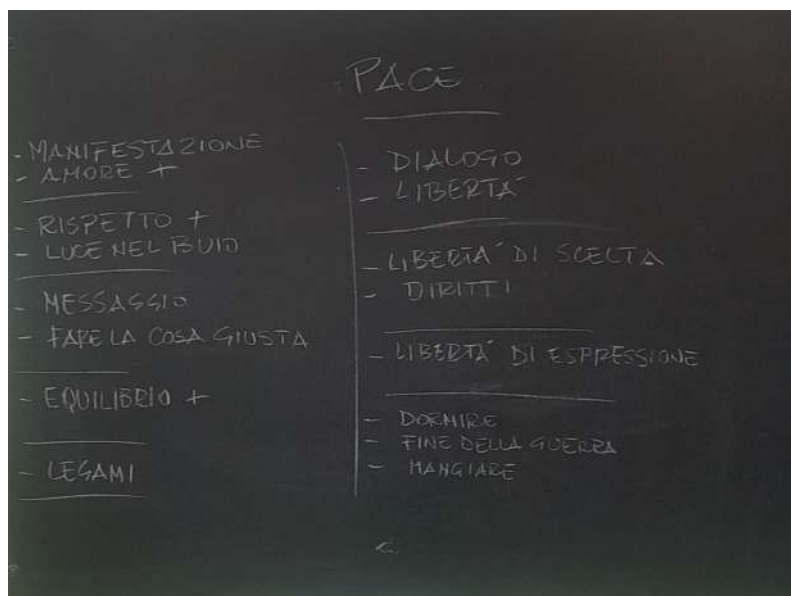 PACE
- MANIFESTAZIONE
- AMORE +
- RISPETTO +
- LUCE NEL BUIO
- MESSAGGIO
- FARE LA COSA GIUSTA
- EQUILIBRIO +
- LEGAMI
- DIALOGO
- LIBERTÀ
- LIBERTÀ DI SCELTA
- DIRITTI
- LIBERTÀ DI ESPRESSIONE
- DORMIRE
- FINE DELLA GUERRA
- MANGIARE